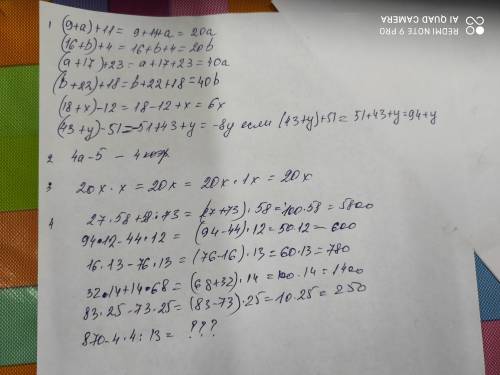 REDMI NOTE 9 PRO
AI QUAD CAMERA
1 (9+a)+11= 9+14a = 20a
(16+b)+4 = 16+b+4 = 20b
(a+17)+23=a+17+23=40a
(b+22)+18=b+22+18=40b
(18+x)-12=18-12+x=6x
(43+y)-51=-51+43+y=-8y если (43+y)+51=51+43+y=94+y
2 4a-5 - 4
3 20x·x=20x=20x·1x=20x
4 27·58+58·73=(27+73)·58=100·58=5800
94·12-44·12=(94-44)·12=50·12=600
16·13-76·13=(76-16)·13=60·13=780
32·14+14·68=(68+32)·14=100·14=1400
83·25-73·25=(83-73)·25=10·25=250
870-4·4:13= ???